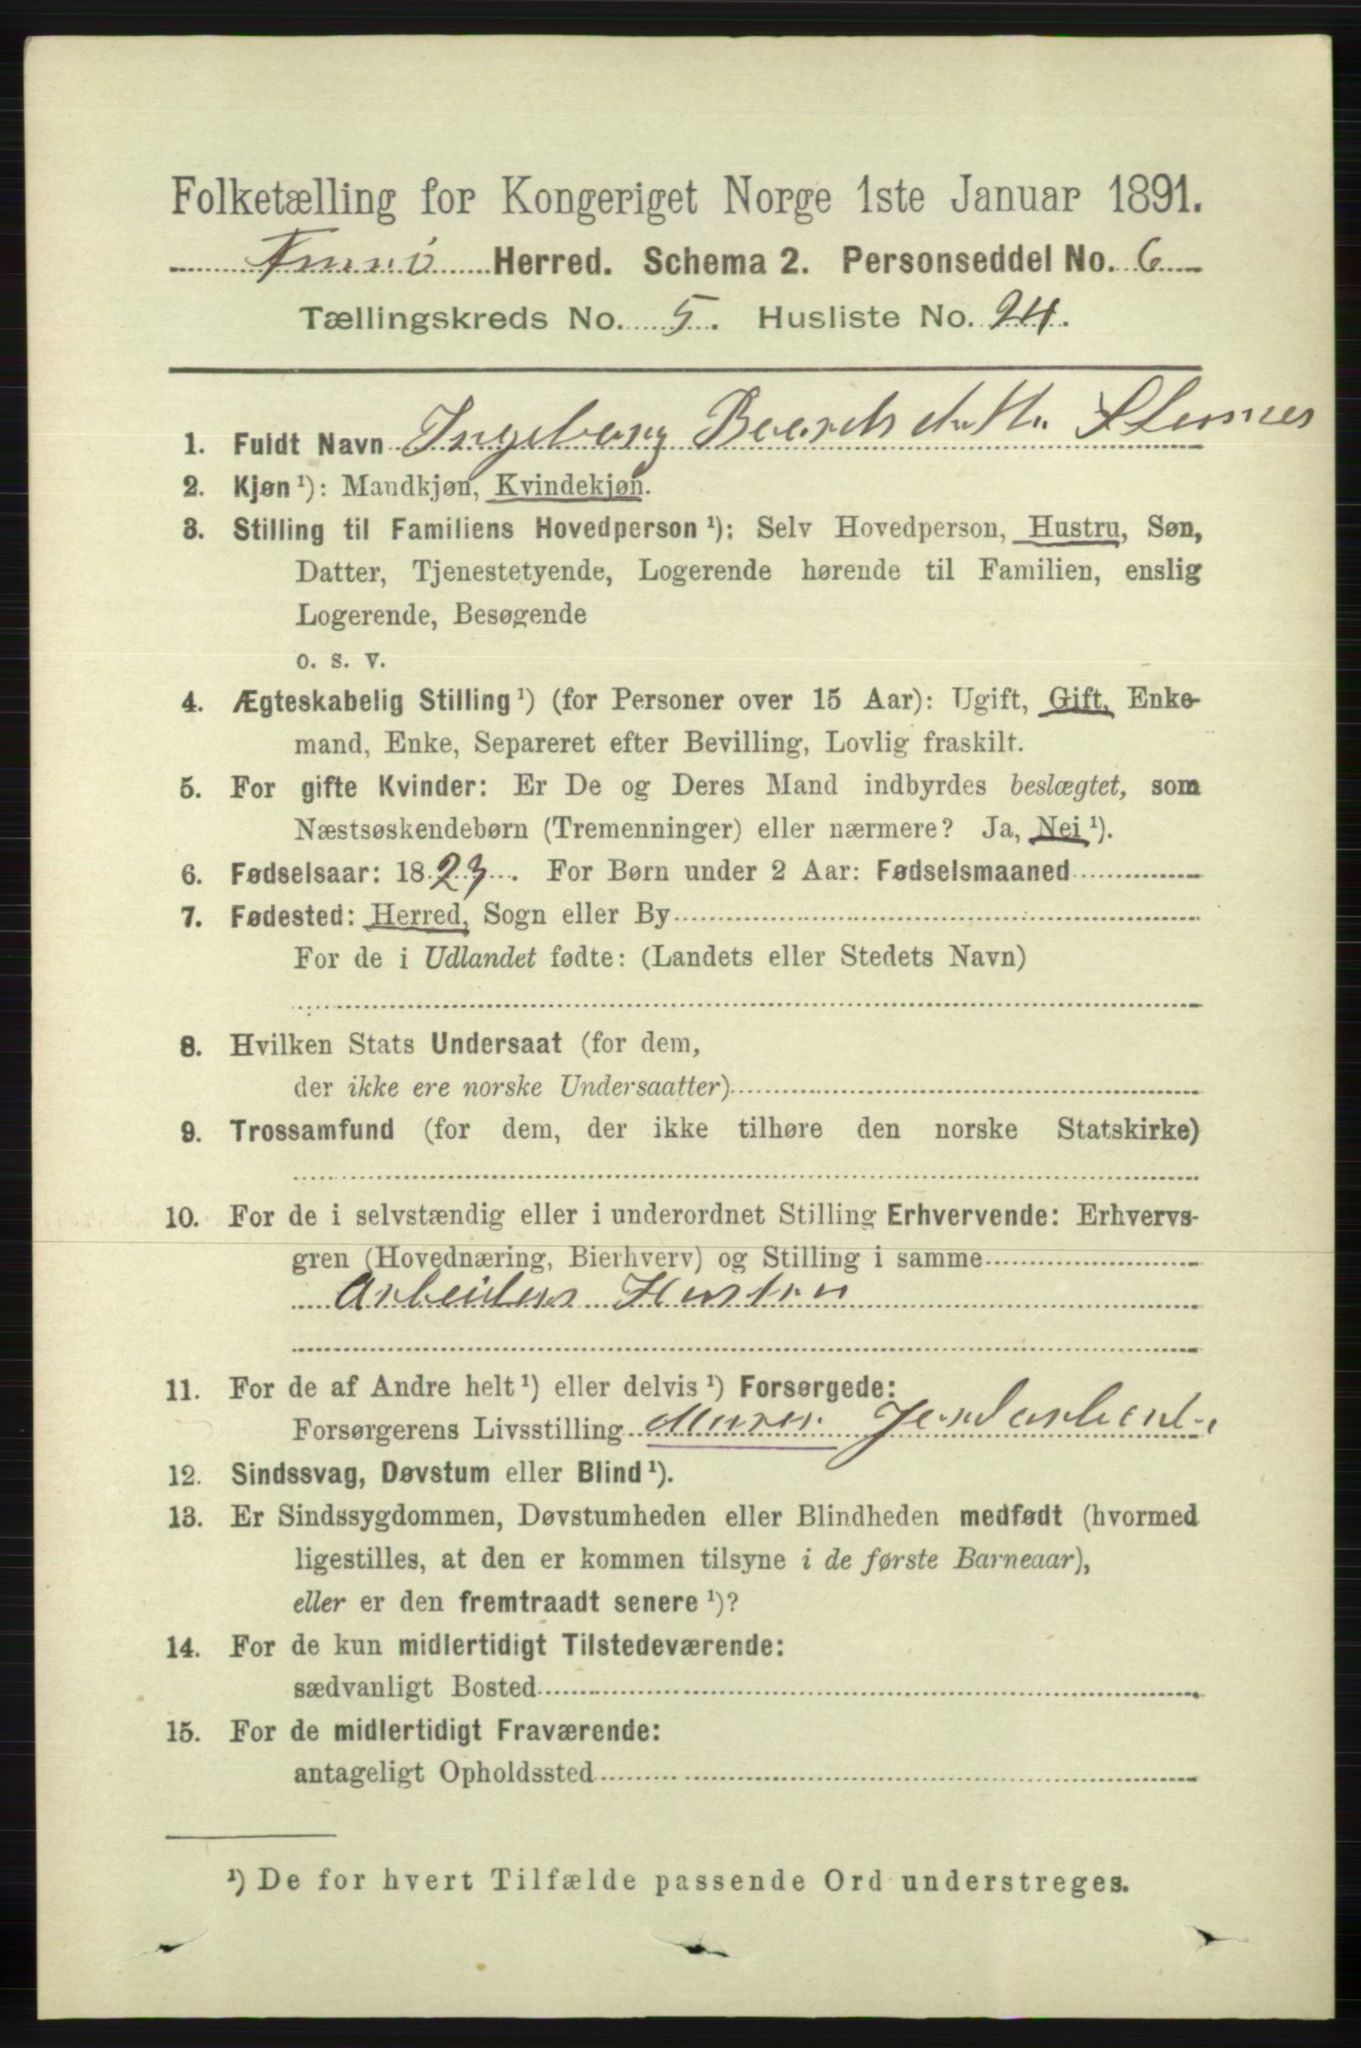 Folketælling for Kongeriget Norge 1ste Januar 1891.
Herred. Schema 2. Personseddel No. 6
Tællingskreds No. 5. Husliste No. 24.
1. Fuldt Navn Ingeborg
2. Kjøn ¹): Mandkjøn, Kvindekjøn.
3. Stilling til Familiens Hovedperson ¹): Selv Hovedperson, Hustru, Søn,
Datter, Tjenestetyende, Logerende hørende til Familien, enslig
Logerende, Besøgende
o. s. v.
4. Ægteskabelig Stilling ¹) (for Personer over 15 Aar): Ugift, Gift, Enke-
mand, Enke, Separeret efter Bevilling, Lovlig fraskilt.
5. For gifte Kvinder: Er De og Deres Mand indbyrdes beslægtet, som
Næstsøskendebørn (Tremenninger) eller nærmere? Ja, Nei ¹).
6. Fødselsaar: 1823. For Børn under 2 Aar: Fødselsmaaned
7. Fødested: Herred, Sogn eller By
For de i Udlandet fødte: (Landets eller Stedets Navn)
8. Hvilken Stats Undersaat (for dem,
der ikke ere norske Undersaatter)
9. Trossamfund (for dem, der ikke tilhøre den norske Statskirke)
10. For de i selvstændig eller i underordnet Stilling Erhvervende: Erhvervs-
gren (Hovednæring, Bierhverv) og Stilling i samme
Arbeiders Hustru
11. For de af Andre helt ¹) eller delvis ¹) Forsørgede:
Forsørgerens Livsstilling Murer Jordarbeid.
12. Sindssvag, Døvstum eller Blind ¹).
13. Er Sindssygdommen, Døvstumheden eller Blindheden medfødt (hvormed
ligestilles, at den er kommen tilsyne i de første Barneaar),
eller er den fremtraadt senere ¹)?
14. For de kun midlertidigt Tilstedeværende:
sædvanligt Bosted
15. For de midlertidigt Fraværende:
antageligt Opholdssted
¹) De for hvert Tilfælde passende Ord understreges.